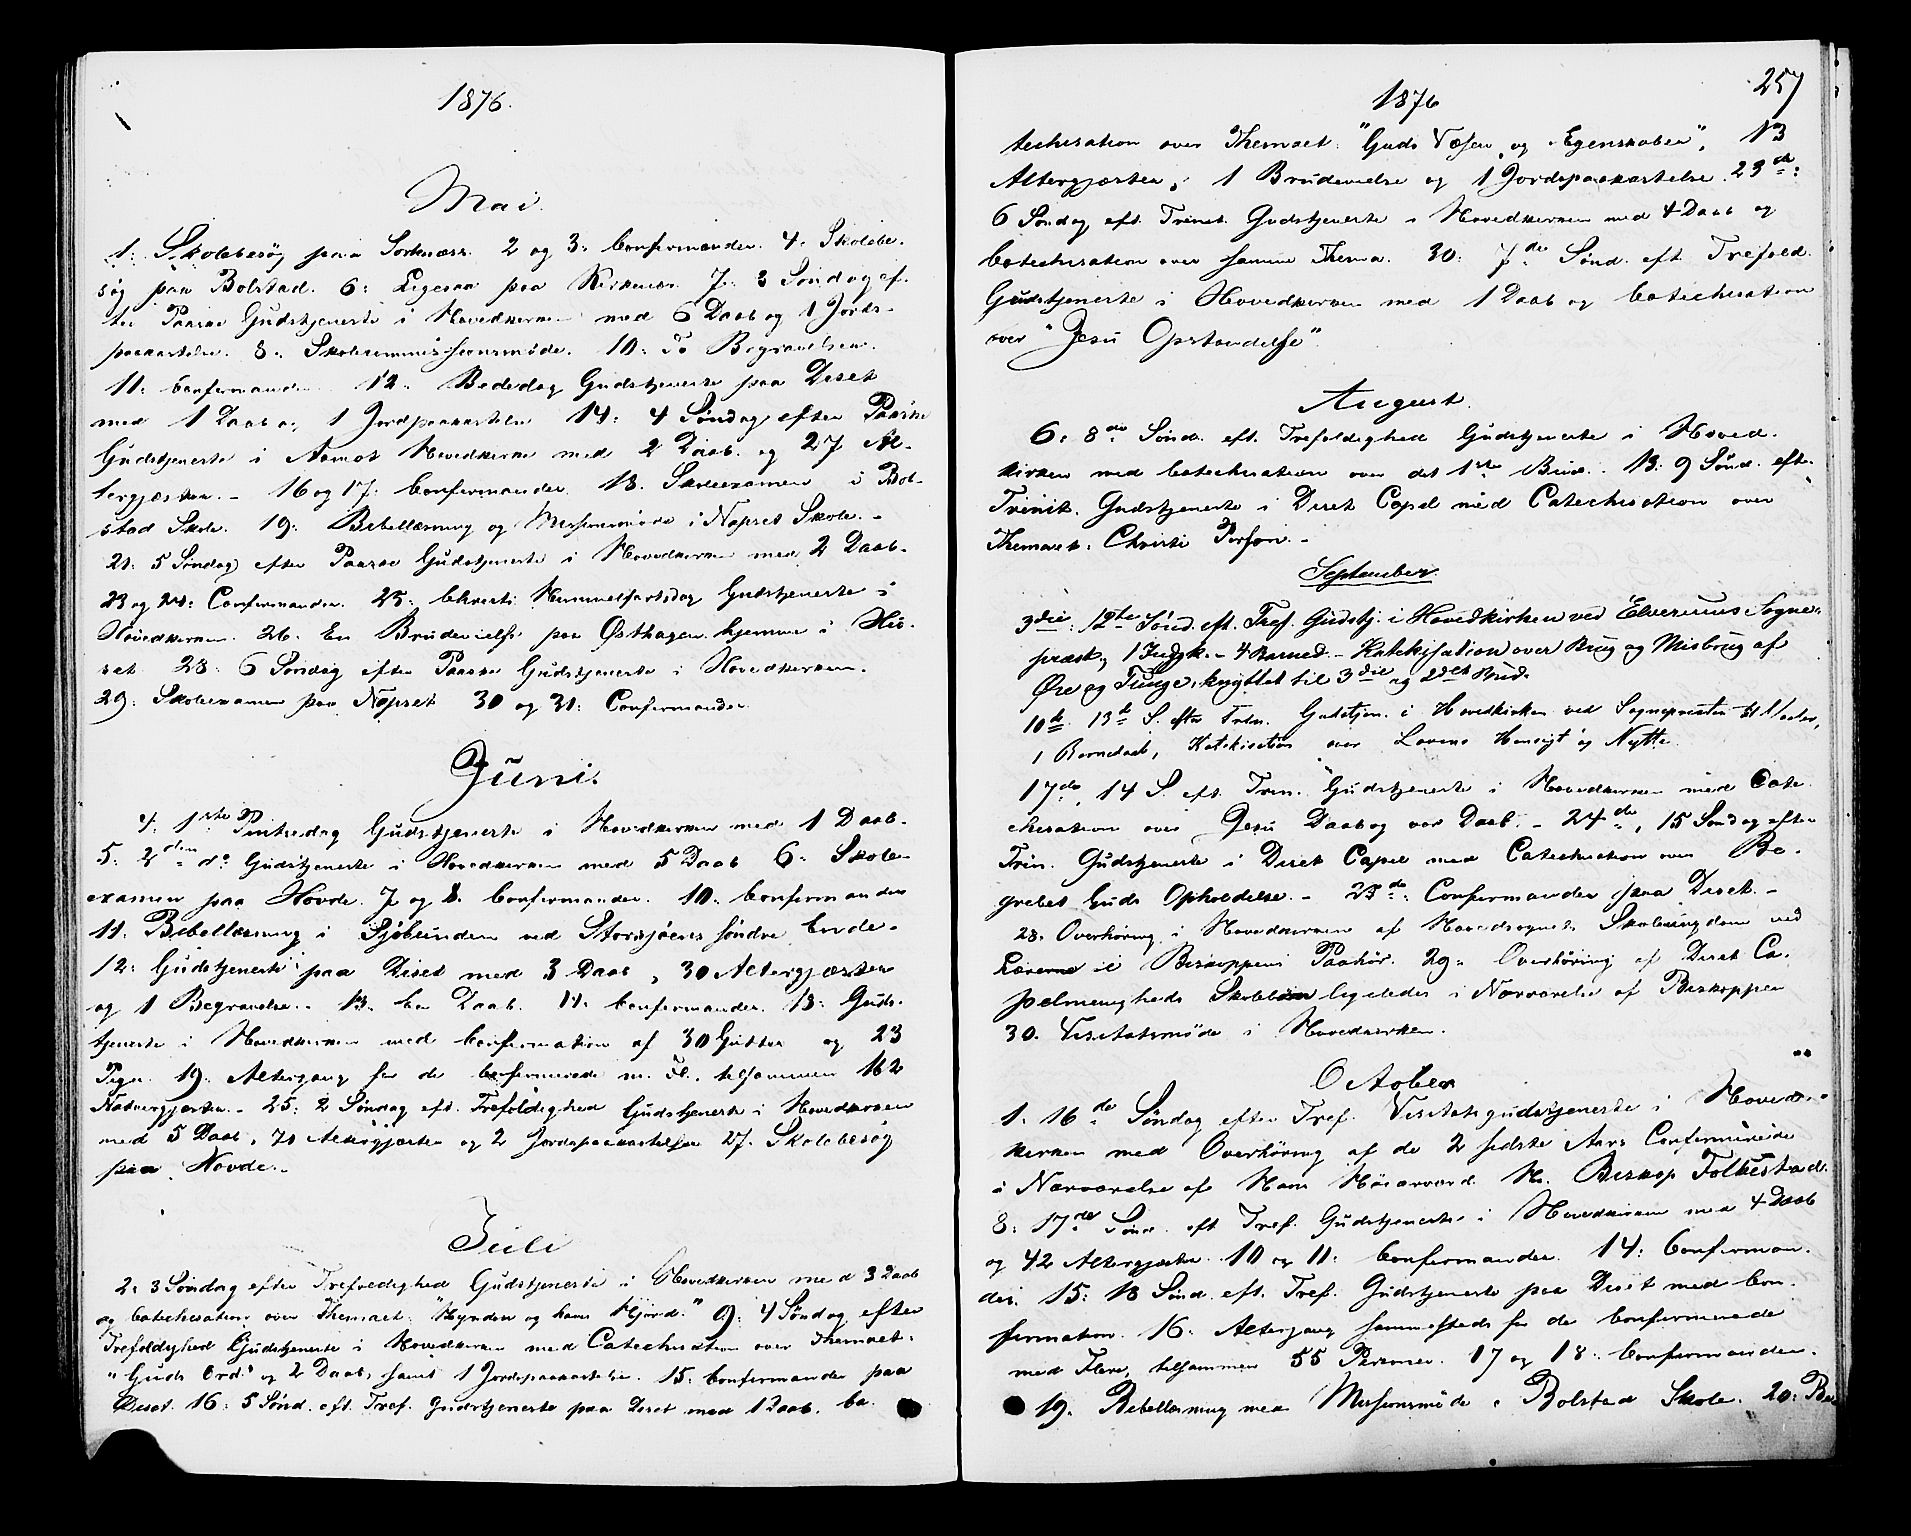 1876.
Mai.
1: Skolebesøg paa Sorknæss. 2 og 3: Confirmander. 4: Skolebe-
søg paa Bolstad. 6: Ligesaa paa Kirkenæs. 7: 3 Søndag ef-
ter Paaske Gudstjeneste i Hovedkirken med 6 Daab og 1 Jords-
paakastelse. 8: Skolecommissionsmøde. 10: To Begravelser.
11: Confirmander. 12: Bededag Gudstjeneste paa Deset
med 1 Daab og 1 Jordpaakastelse 14: 4 Søndag efter Paaske
Gudstjeneste i Aamot Hovedkirke med 2 Daab og 27 Al-
tergjæster. - 16 og 17: Confirmander. 18. Skoleexamen i Bol-
stad Skole. 19: Bibellæsning og Missionsmøde i Nøpset Skole. -
21: 5 Søndag efter Paaske Gudstjeneste i Hovedkirken med 2 Daab.
23 og 24: Confirmander. 25: Christi Himmelfartsdag Gudstjeneste i
Hovedkirken. 26. En Brudevielse paa Østhagen hjemme i
28: 6 Søndag efter Paaske Gudstjeneste i Hovedkirken.
29: Skoleexamen paa Nøpset 30 og 31: Confirmander
Juni.
4: 1ste Pintsedag Gudstjeneste i Hovedkirken med 1 Daab.
5: 2den do Gudstjeneste i Hovedkirken med 5 Daab 6: Skole-
examen paa Hovde. 7 og 8. Confirmander. 10. Confirmander
11: Bibellæsning i Sjøbunden ved Storsjøens søndre Ende.
12: Gudstjeneste paa Deset med 3 Daab, 30 Altergjæster
og 1 Begravelse. - 13. Daab. confirmander. 18: Guds-
tjeneste i Hovedkirken med Confirmation af 30 Gutter og 23
Piger. 19: Altergang for de Confirmerede m. Fl., tilsammen 162
Nadvergjæster. - 25: 2 Søndag eft. Trefoldighed Gudstjeneste i Hovedkirken
med 5 Daab, 71 Altergjæster og 2 Jordspaakastelser 27. Skolebesøg
paa Hovde. -
Juli
2: 3 Søndag efter Trefoldighed Gudstjeneste i Hovedkirken med 3 Daab
og Catechisation over Themaet: "Hyrden og hans Hjord." 9: 4 Søndag efter
Trefoldighed Gudstjeneste i Hovedkirken med Catechisation over Themaet:
"Guds Ord" og 2 Daab, samt 1 Jordspaakastelse. 15: Confirmander paa
Deset. 16: 5 Sønd. eft. Tref. Gudstjeneste paa Deset med 1 Daab. Ca-
257
1876
techisation over Themaet: "Guds Væsen og Egenskaber", 13
Altergjæster, 1 Brudevielse og 1 Jordspaakastelse. 23de:
6 Søndag eft. Trinit. Gudstjeneste i Hovedkirken med 4 Daab og
Catechisation over samme Thema. 30: 7de Sønd. eft. Trefold.
Gudstjeneste i Hovedkirken med 1 Daab og Catechisation
over "Jesu Opstandelse".
August.
6: 8de Sønd. eft. Trefoldighed Gudstjeneste i Hoved-
kirken med Catechisation over det 1ste Bud. 13: 9 Sønd. eft.
Trinit. Gudstjeneste i Deset Capel med Catechisation over
Themaet: Christi Person. -
September.
3die: 12te Sønd. eft. Tref. Gudstj. i Hovedkirken ved Elverums Sogne-
præst, 1 - 4 Barned. - Katekisation over Brug og Misbrug af
Øre og Tunge, knyttet til 3die og 2det Bud.
10de: 13de S. efter Trin. Gudstjen. i Hovedkirken ved Sognepresten til
1 Barnedaab, Katekisation over Lovens Hensigt og Nytte.
17de, 14 S. eft. Trin. Gudstjeneste i Hovedkirken med Cate-
chisation over Jesu Daab og vor Daab. - 24de, 15 Søndag efter
Trin. Gudstjeneste i Deset Capel med Catechisation over Be-
grebet Guds Opholdelse. - 25de: Confirmander paa Deset. -
28. Overhøring i Hovedkirken af Hovedsognets Skoleungdom ved
Lærerne i Biskoppens Paahør. 29: Overhøring af Deset Ca-
pelmenigheds Skolebørn ligeledes i Nærværelse af Biskoppen
30. Visitatsmøde i Hovedkirken.
October
1: 16de Søndag efter Tref. Visitatsgudstjeneste i Hoved-
kirken med Overhøring af de 2 sidste Aars Confirmerede
i Nærværelse af Hans Høiærværd. Hr. Biskop Folkestad.
8: 17de Sønd. eft. Tref. Gudstjeneste i Hovedkirken med 4 Daab
og 42 Altergjæster. 10 og 11: Confirmander. 14: Confirman-
der. 15: 18 Sønd. eft. Tref. Gudstjeneste paa Deset med Con-
firmation. 16: Altergang sammesteds for de Confirmerede
med Flere, tilsammen 55 Personer. 17 og 18: Confirmander.
19. Bibellæsning med Missionsmøde i Bolstad Skole. 20: